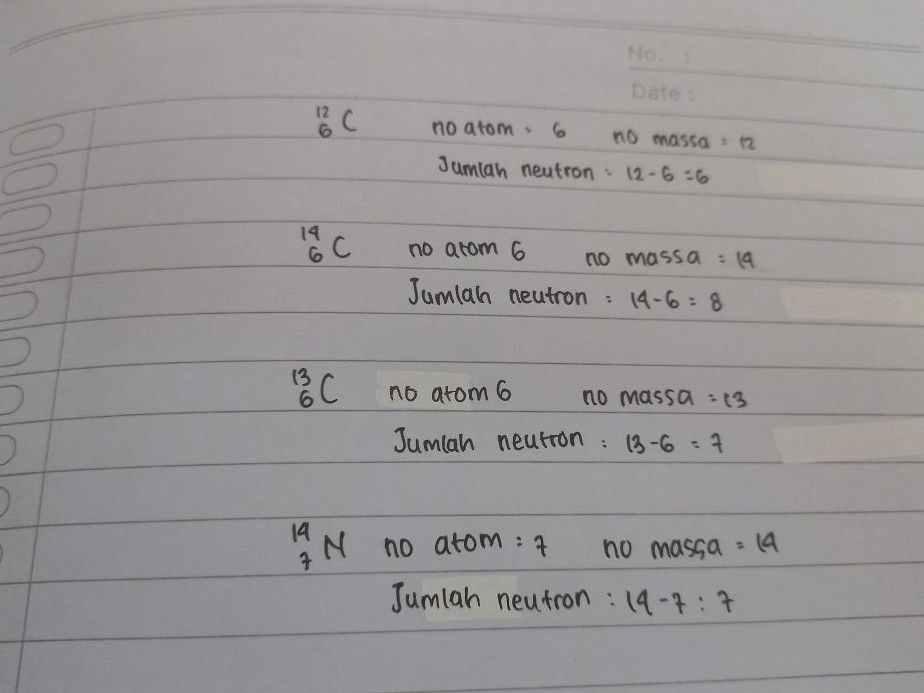 No. :
Date :
¹²₆C no atom = 6 no massa = 12
Jumlah neutron = 12 - 6 = 6
¹⁴₆C no atom 6 no massa = 14
Jumlah neutron : 14 - 6 = 8
¹³₆C no atom 6 no massa = 13
Jumlah neutron : 13 - 6 = 7
¹⁴₇N no atom : 7 no massa = 14
Jumlah neutron : 14 - 7 : 7